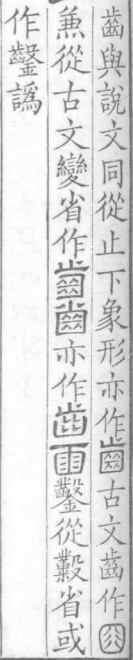 齒與說文同從止下象形亦作齒古文齒作
𠚕兼從古文變省作齒齒亦作齒鑿從糳省或
作鑿譌